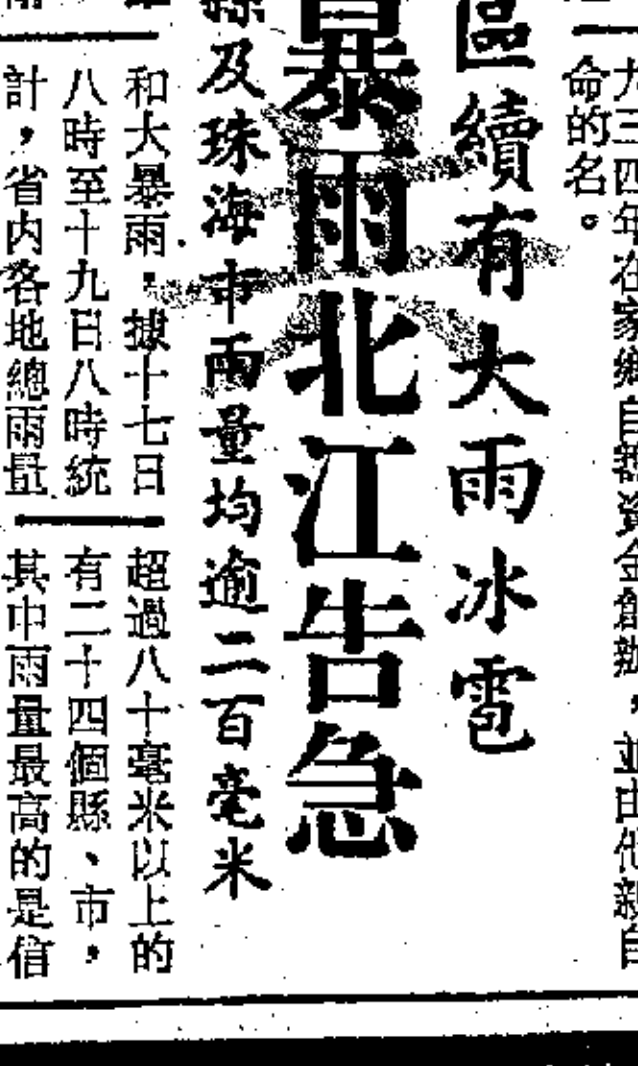 九三四年在家鄉自籌資金創辦，並由他親自
命的名。
區續有大雨冰雹
暴雨北江告急
縣及珠海市雨量均逾二百毫米
和大暴雨。據十七日
八時至十九日八時統
計，省内各地總雨量
超過八十毫米以上的
有二十四個縣、市，
其中雨量最高的是信